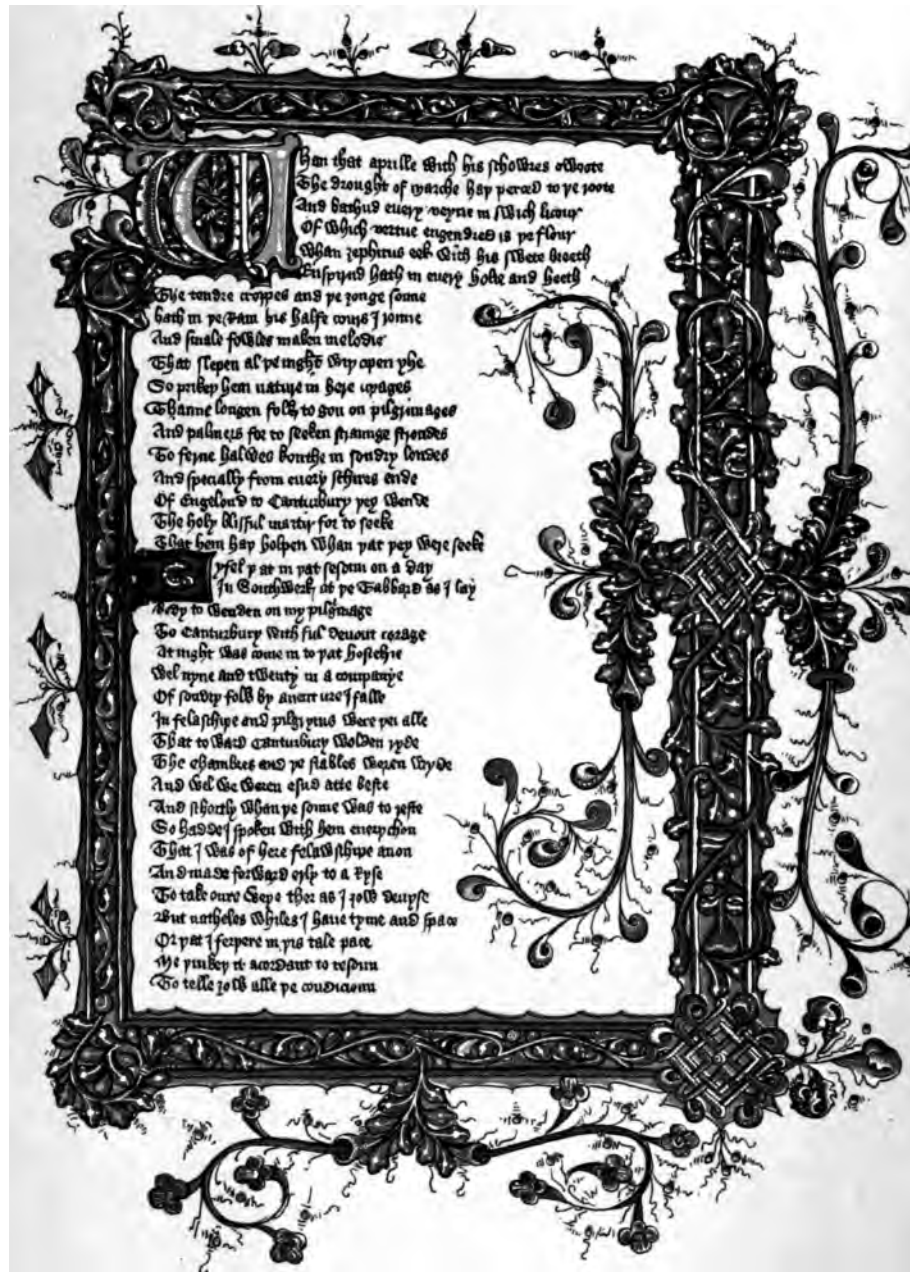 Whan that aprille with his schowres swoote
The drought of marche haþ perced to þe roote
And bathud euery veyne in swich licour
Of which vertue engendred is þe flour
Whan zephirus eek with his swete breeth
Enspirud hath in euery holte and heeth
The tendre croppes and þe ȝonge sonne
hath in þe Ram his halfe cours I ronne
And smale fowles maken melodie
That slepen al þe night wiþ open yhe
So prikeþ hem nature in here corages
Thanne longen folk to gon on pilgrimages
And palmers for to seeken straunge strondes
To ferne halwes kouthe in sondry londes
And specially from euery schires ende
Of Engelond to Canturbury þey wende
The holy blisful martir for to seeke
That hem haþ holpen whan þat þey were seeke
yfel þat in þat sesoun on a day
In Southwerk at þe Tabbard as I lay
Redy to wenden on my pilgrimage
To Canturbury with ful deuout corage
At night was come in to þat hostelrie
wel nyne and twenty in a companye
Of sondry folk by auenture I falle
In felaschipe and pilgryms were þei alle
That to ward Canturbury wolden ryde
The chambres and þe stables weren wyde
And wel we weren esud atte beste
And schortly whan þe sonne was to reste
So hadde I spoken with hem euerychon
That I was of here felawschipe anon
And made forward erly to a ryse
To take oure weye ther as I ȝow deuyse
But natheles whiles I haue tyme and space
Or þat I ferþere in þis tale pace
Me þinkeþ it acordant to resoun
To telle ȝow alle þe condicioun